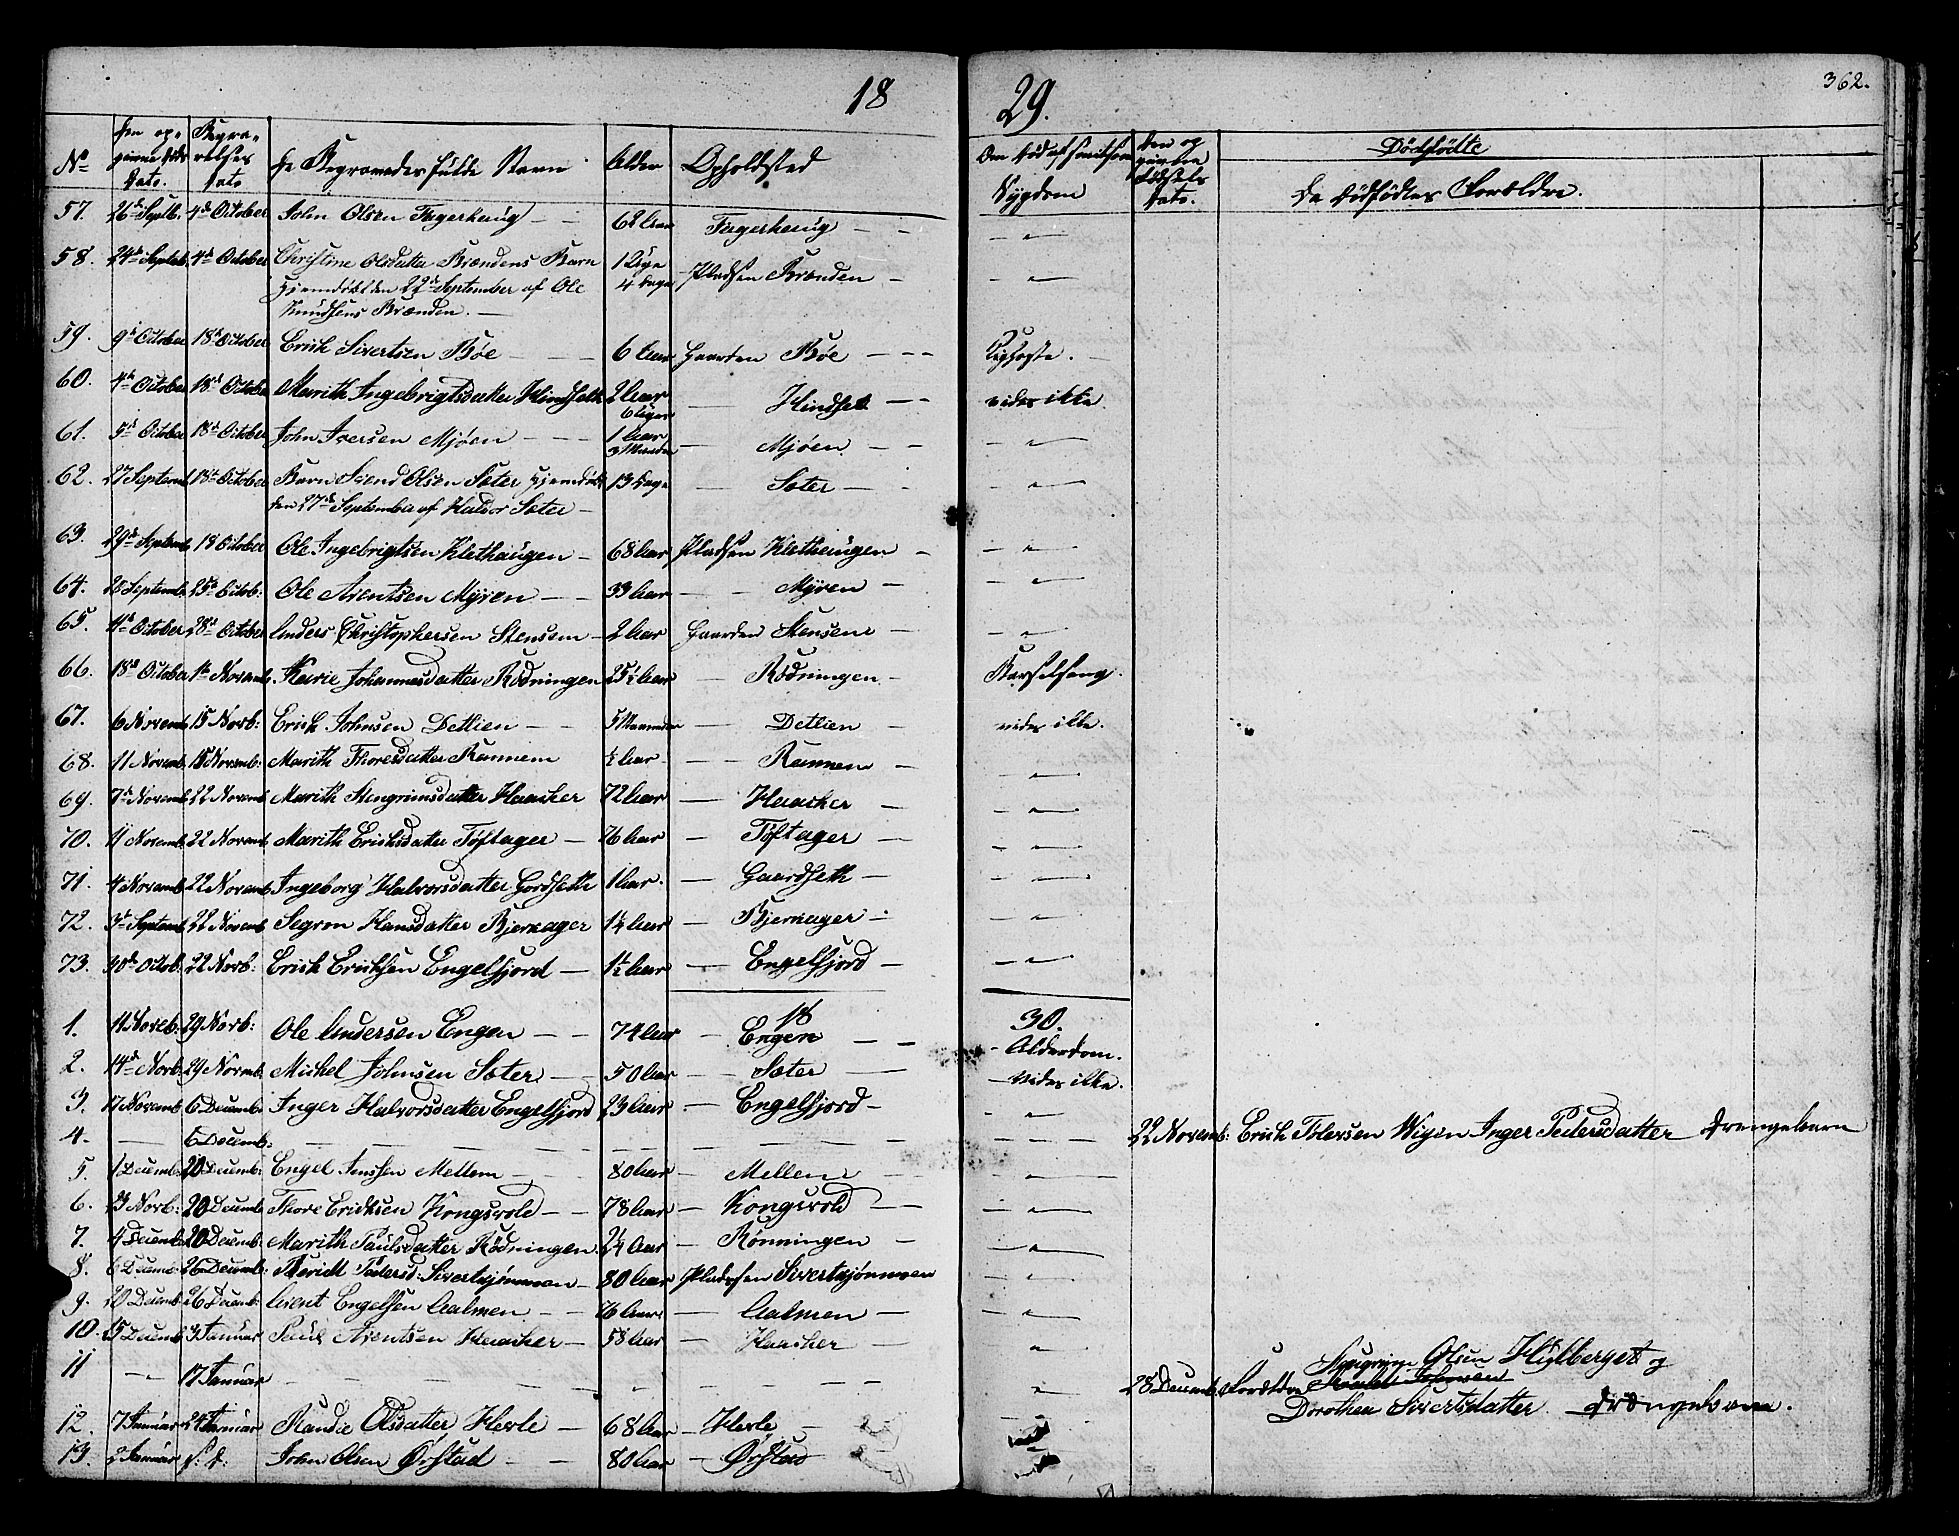 18 29. 362.
No Den opgivne Døds Dato. Begravelses Dato De Begravedes fulde Navn Alder Opholdsted Om død af smitsom Sygdom Den opgivne Fødsels Dato. Dødfødte De dødfødtes Forældre.
57. 26de Septb. 4de October John Olsen Fagerhaug 62 Aar Fagerhaug
58. 24de Septbr 4de October Christine Olsdatter Brændens Barn 1 Uge Pladsen Brænden
Hjemdøbt den 22de September af Ole 4 Dage
Knudsens Brænden.
59. 9de October 18de October Erich Sivertsen Böe 6 Aar Gaarden Böe Kighoste.
60. 4de October 18de October Marith Ingebrigtsdatter Hindseth 2 Aar Hindset vides ikke
6 Uger
61. 9de October 18de October John Iversen Mjöen 1 Aar Mjöen
3 Maaneder
62. 27 Septemb. 18de October Barn Svend Olsen Sæter Hjemdøbt 13 Dage Sæter
den 27de September af Halvor Sæter
63. 29de Septemb. 18 October Ole Ingebrigtsen Klethaugen 68 Aar Pladsen Klethaugen
64. 28 Septemb. 25de Octob: Ole Arentsen Myren 33 Aar Myren
65. 11te October 28de October Anders Christophersen Stensem 2 Aar Gaarden Stensem
66. 18de October 1te Novemb. Marie Johannesdatter Rödningen 25½ Aar Rödningen Barselseng.
67. 6 Novemb. 15 Novb: Erich Johnsen Detlien 5 Maaneder Detlien vides ikke.
68. 11 Novemb. 15 Novemb: Marith Thoresdatter Rannem ½ Aar Rannem
69. 7de Novemb. 22 Novemb. Marith Stengrimsdatter Haacker 72 Aar Haacker
70. 11 Novemb. 22 Novemb. Marith Erichsdatter Töftager 76 Aar Töftager
71. 4 Novemb. 22 Novemb. Ingeborg Halvorsdatter Gordseth 1 Aar. Gaardseth
72. 3de Septemb. 22 Novemb. Segron Hansdatter Bjerkager 1¼ Aar Bjerkager
73. 30de Octob. 22 Novb: Erich Erichsen Engelsjord 1½ Aar Engelsjord
18 30.
1. 11 Noveb: 29 Novb: Ole Andersen Engen 74 Aar Engen Alderdom.
2. 14de Novb. 29 Novemb. Michel Johnsen Sæter 50 Aar Sæter vides ikke.
3. 17 Novemb. 6 Decemb. Inger Halvorsdatter Engelsjord 23 Aar Engelsjord
4. 6 Decemb: 22 Novemb: Erich Tolersen Wigen Inger Pedersdatter Drengebarn
5. 1 Decemb. 20 Decemb: Engel Jonssen Mellem 80 Aar Mellem
6. 23 Novb: 20 Decemb. Thore Erichsen Kongsvold 78 Aar Kongsvold
7. 4 Decemb. 20 Decemb: Marith Paulsdatter Rödningen 2¼ Aar Rönningen
8. 6 Decemb: 26 Decemb: Berith Pedersd: Sivertsjönmoen 80 Aar Pladsen Sivertsjönmoen
9. 20 Decemb. 26 Decemb: Arent Engelsen Aalmen 76 Aar Aalmen
10. 15 Decemb. 3 Januar Paul Arentsen Haacker 58 Aar Haacker
11 17 Januar 28 Decemb. Forældre Olsen Hylberget og
Dorothea Sivertsdatter. Drengebarn.
12. 7 Januar 24 Januar Randie Olsdatter Hevle 68 Aar Hevle
13. 2 Januar s. d. John Olsen Örstad 80 Aar Örstad